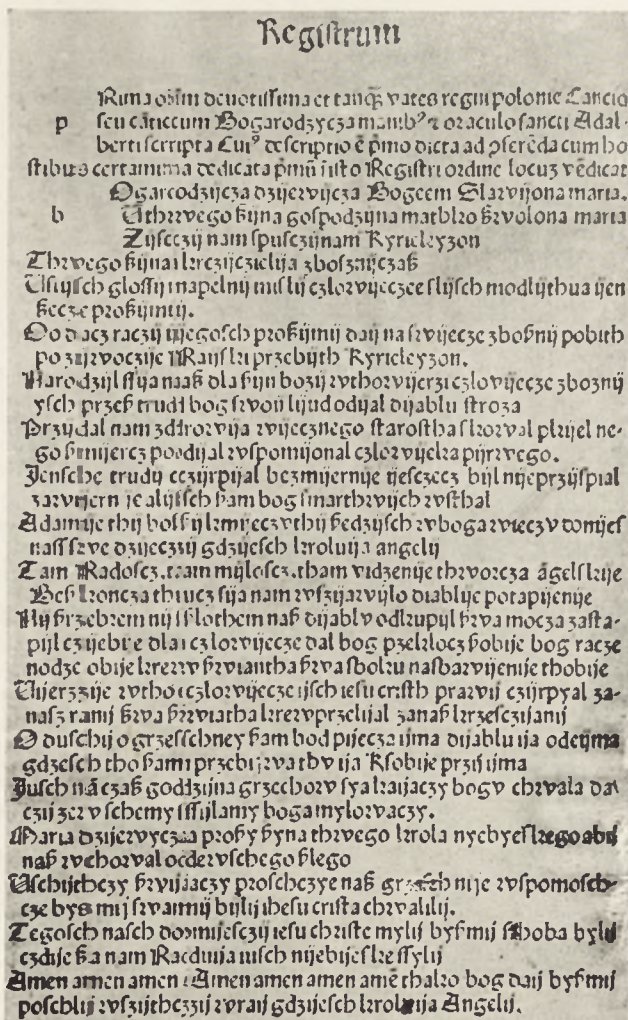 Registrum
Runa om̄m deuotissima et tanq̄ȝ vates regni polonie Cancio
p seu cāticcum Bogarodzycza manib⁹ ⁊ oraculo sancti Adal-
berti scrripta Cui⁹ descriptio ē p̄mo dicta ad ɔserēda cum ho
stibus certamina dedicata p̄mū isto Registri ordine locuȝ vēdicat
Ogarcodzijcza dzijerwijcza Bogeem Slarvijona maria.
b Uthrrvego ßijna gospodzijna matbkro ßrvolona maria
Zijsczij nam spusczijnam Kyrieleyzon
Thrvego ßijna ikrczijczielija zbosznijczaß
Uslijsch glossij napelnij mislij czlorvijeczee slijsch modlijthua ijen
ßecze proßijmij.
Oo dacz raczij ijegosch proßijmij daij na srvijecze zboßnij pobith
po zijrvoczije Raijski przebijth Kyrieleyzon.
Narodzijl ssija naaß dla ßijn bozij rvthorvijerzi czlovijecze zboznij
ysch przeß trudi bog srvoij lijud odijal dijablu stroza
Przijdal nam zdrorvija rvijecznego starostha skorval pkijel ne-
go ßmijercz poodijal rvspomijonal czlorvijeka pijrrvego.
Jensche trudij czijrpijal bezmijernije ijesczecz bijl nijeprzijspial
zarvijern ie alijsch ßam bog smarthrvijch rvsthal
Adamije thij boskij kmijeczvthij ßedzijsch rvboga rvieczv domijes
nassrve dzijeczij gdzijesch krolvija angelij
Tam Radoscz.tam myloscz.tham vidzenije thrvorcza āgelskije
Beß koncza thucz sija nam rvszijarvijlo diablije potapijenije
Nij ßrzebrem nij slothem naß dijablv odkupijl ßrva mocza zasta-
pijl czijebie dla czlorvijecze dal bog pzeklocz ßobije bog racze
nodze obije krerv ßrviantha ßrva sboku nasbarvijenije thobije
Uijerzzije rvtho czlorvijecze ijsch iesu cristh prarvij czijrpyal za-
nasz ranij ßrva ßrviatha krervprzelijal zanaß krzesczijanij
O duschij o grzesschney ßam bod pijecza ijma dijablu ija odeijma
gdzesch tho ßam przebijrva thv ija Kßobije przijijma
Jusch nā czaß godzijna grzechorv sya kaijaczy bogv chrvala da
czij zerv schemy ssijlamy boga mylorvaczy.
Maria dzijervycza proßy ßyna thrvego krola nyebyeskego abij
naß rvchorval ocdervschego ßlego
Uschijthczy ßrvijaczy proschczye naß grzesch nije rvspomosch-
cze bys mij srvaimij bijlij ihesu crista chrvalilij.
Tegosch nasch domijesczij iesu christe mylij byßmij sthoba bylij
czdije ßa nam Racduija iusch nijebijeske ssylij
Amen amen amen Amen amen amen amē thakro bog daij byßmij
poschlij rvszijthczij rvraij gdzijesch krolvija Angelij.